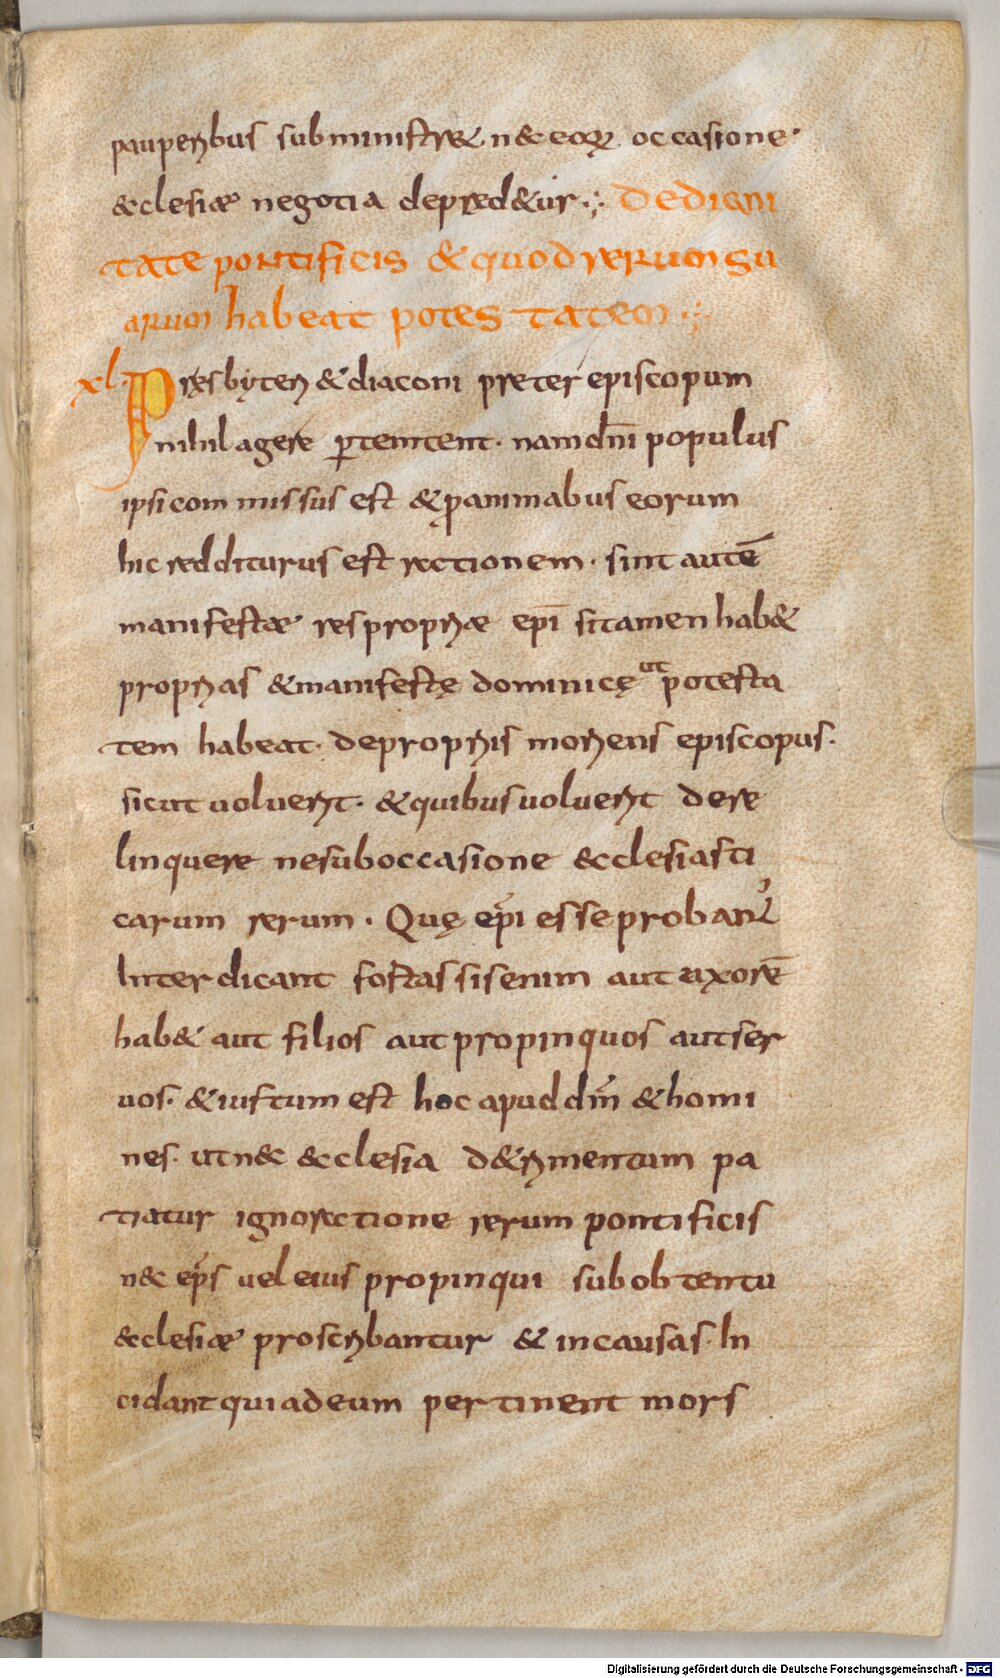 9
pauperibus subministret n&c eoꝝ occasione·
&cclesiæ negotia depred&ur·:· De digni
tate pontificis & quod rerum su
arum habeat potestatem·:·
xl. Presbyteri & diaconi preter episcopum
nihil agere ꝑtemtent· nam dn̄i populus
ipsi commissus est & pro animabus eorum
hic redditurus est rectionem· sint autē
manifestæ res propriæ epi̅ si tamen hab&
proprias & manifestę dominicę ut potesta
tem habeat· de propriis moriens episcopus·
sicut uoluerit· & quibus uoluerit dere
linquere ne sub occasione &cclesiasti
carum rerum· Quę ep̅i esse probant᷑
Interdicant fortassis enim aut uxorē
hab& aut filios aut propinquos aut ser
uos· & iustum est hoc apud dm̄ & homi
nes· ut n&c &cclesia d&rimentum pa
tiatur ignorectione rerum pontificis
n&c ep̅s uel eius propinqui sub obtentu
&cclesiæ proscribantur & in causas· In
cidant qui ad eum pertinent mors
Digitalisierung gefördert durch die Deutsche Forschungsgemeinschaft - DFG